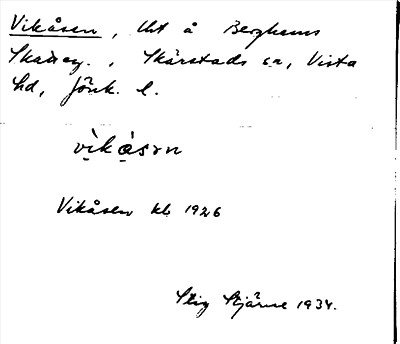 Vikåsen, lht å Berghems
Skatteg., Skärstads sn, Vista
hd, Jönk. l.
vikåsən
Vikåsen kb 1926
Stig Stjärne 1934.